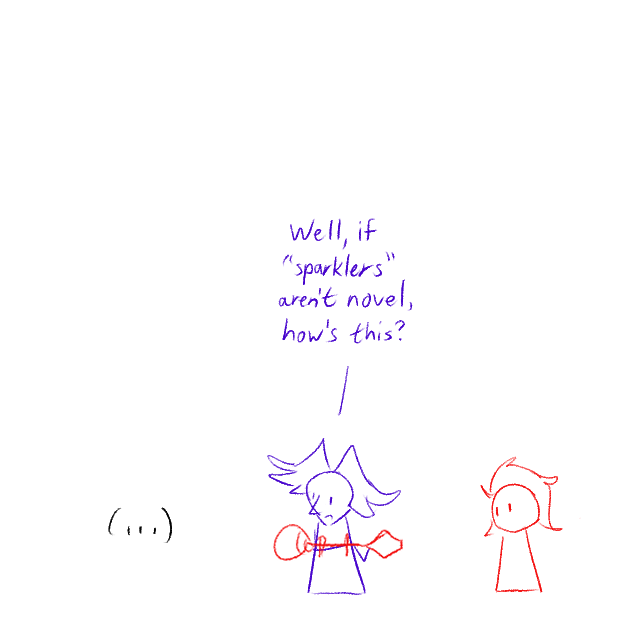 Well, if
"sparklers"
aren't novel,
how's this?
(...)